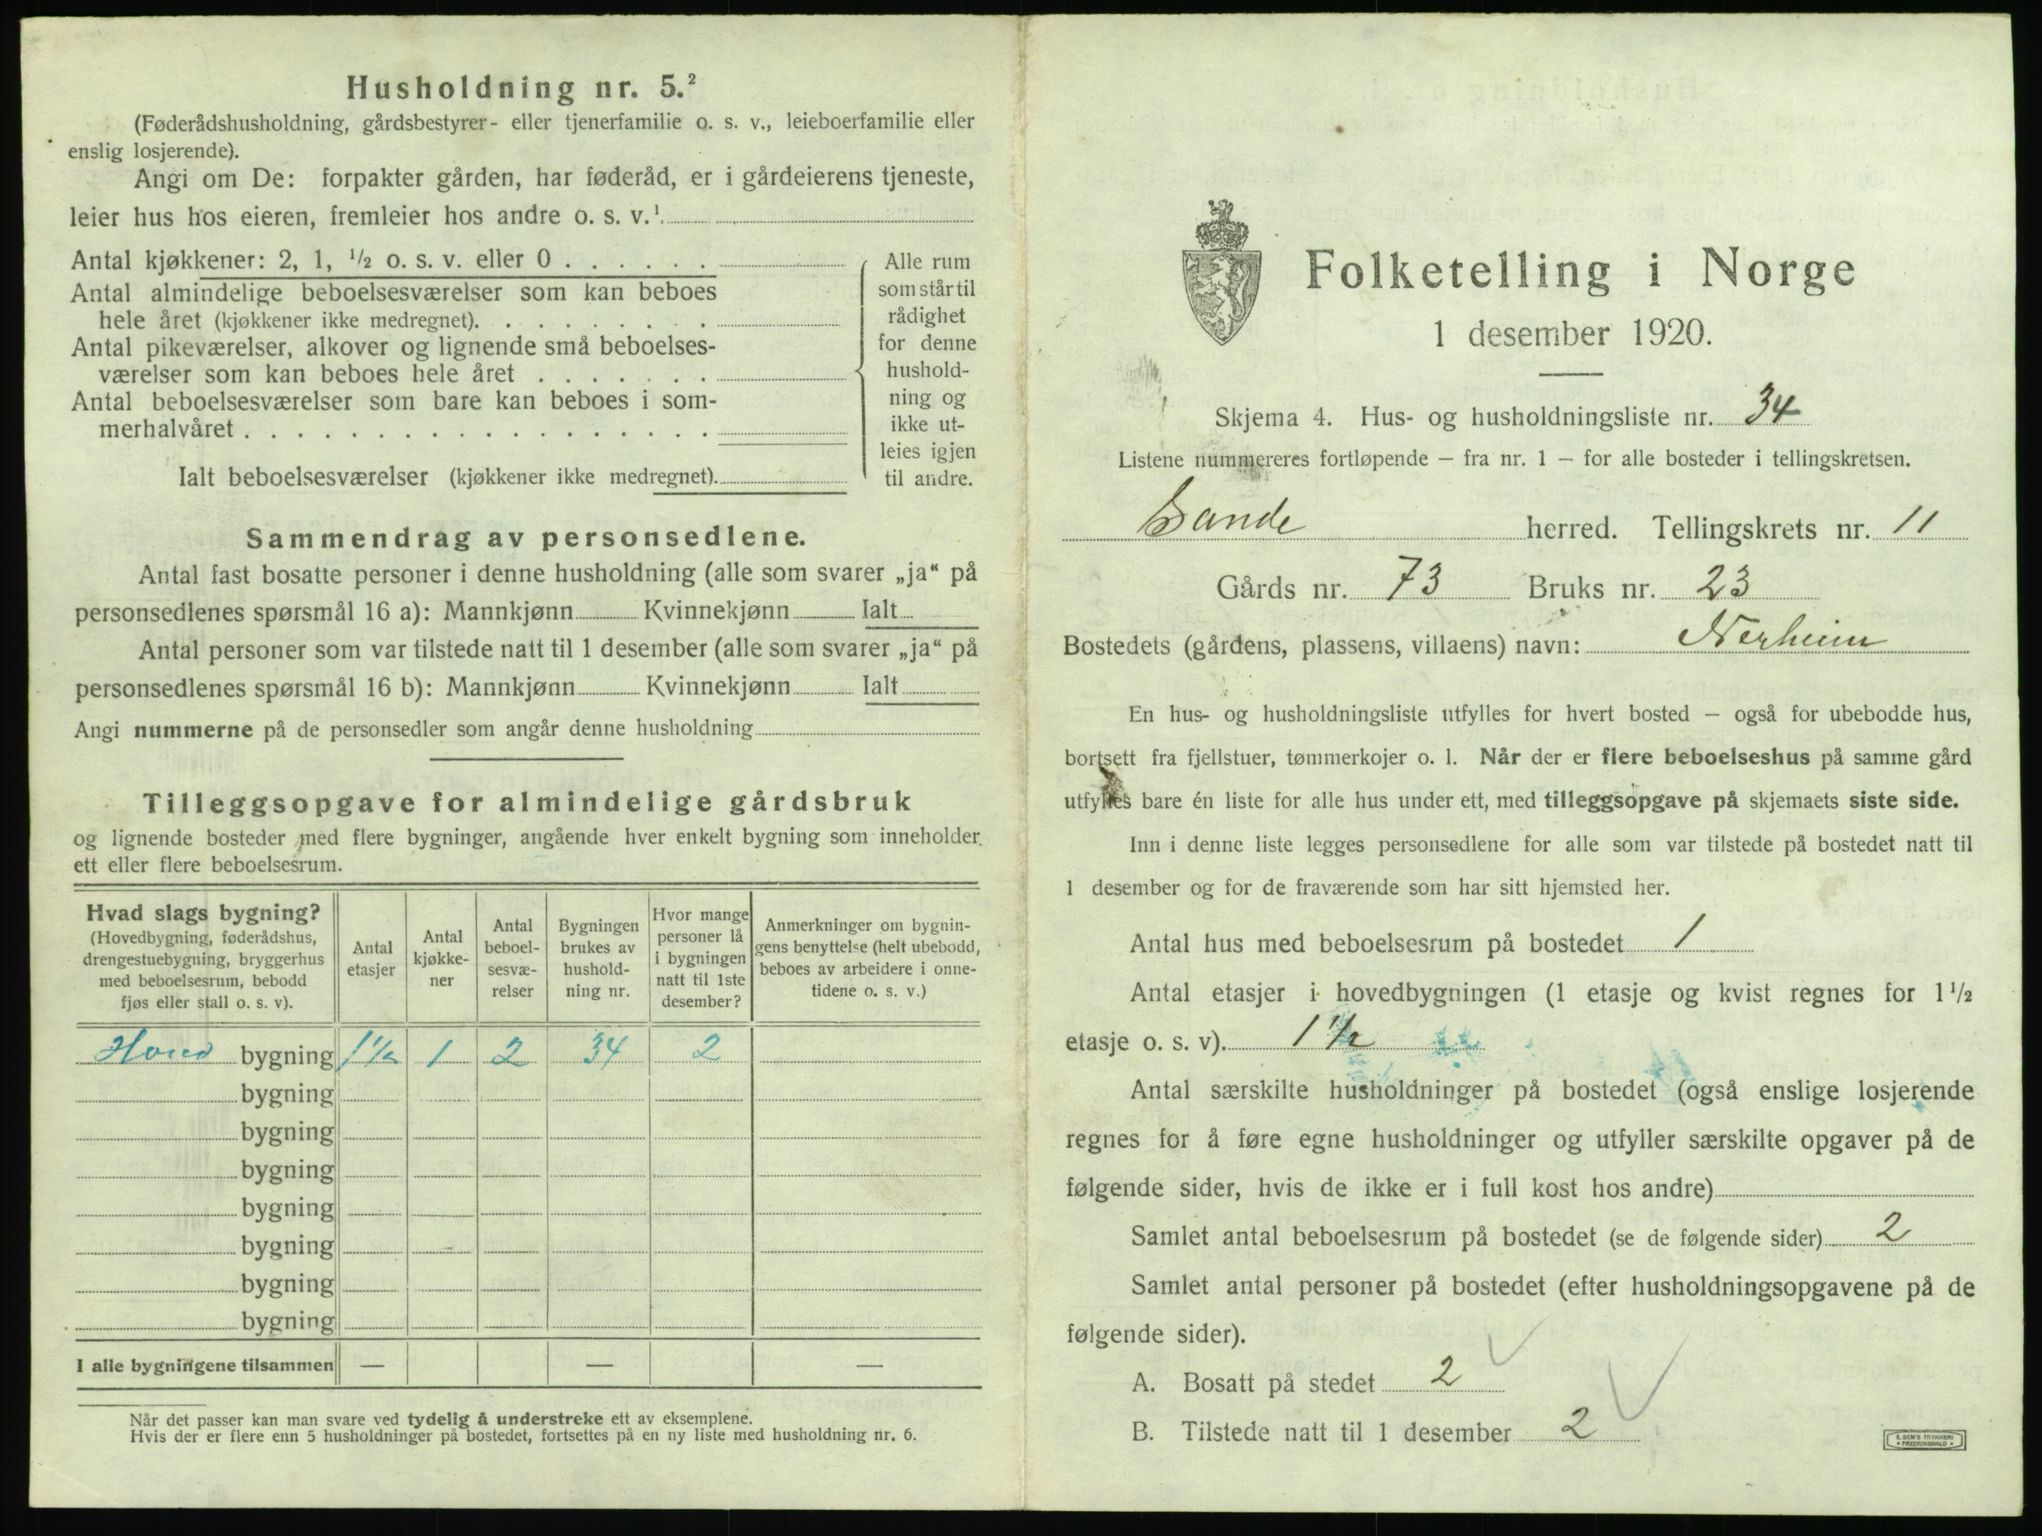 Husholdning nr. 5.²
(Føderådshusholdning, gårdsbestyrer- eller tjenerfamilie o. s. v., leieboerfamilie eller
enslig losjerende).
Angi om De: forpakter gården, har føderåd, er i gårdeierens tjeneste,
leier hus hos eieren, fremleier hos andre o. s. v.¹
Antal kjøkkener: 2, 1, ½ o. s. v. eller 0 . . . . . .
Antal almindelige beboelsesværelser som kan beboes
hele året (kjøkkener ikke medregnet). . . . . . . . .
Antal pikeværelser, alkover og lignende små beboelses-
værelser som kan beboes hele året . . . . . . .
Antal beboelsesværelser som bare kan beboes i som-
merhalvåret . . . . . . . . . . . . . . . . . .
Ialt beboelsesværelser (kjøkkener ikke medregnet).
Alle rum
som står til
rådighet
for denne
hushold-
ning og
ikke ut-
leies igjen
til andre.
Sammendrag av personsedlene.
Antal fast bosatte personer i denne husholdning (alle som svarer „ja“ på
personsedlenes spørsmål 16 a): Mannkjønn Kvinnekjønn Ialt
Antal personer som var tilstede natt til 1 desember (alle som svarer „ja“ på
personsedlenes spørsmål 16 b): Mannkjønn Kvinnekjønn Ialt
Angi nummerne på de personsedler som angår denne husholdning
Tilleggsopgave for almindelige gårdsbruk
og lignende bosteder med flere bygninger, angående hver enkelt bygning som inneholder
ett eller flere beboelsesrum.
Hvad slags bygning?
(Hovedbygning, føderådshus,
drengestuebygning, bryggerhus
med beboelsesrum, bebodd
fjøs eller stall o. s. v).
Antal
etasjer
Antal
kjøkke-
ner
Antal
beboel-
sesvæ-
relser
Bygningen
brukes av
hushold-
ning nr.
Hvor mange
personer lå
i bygningen
natt til 1ste
desember?
Anmerkninger om bygnin-
gens benyttelse (helt ubebodd,
beboes av arbeidere i onne-
tidene o. s. v.)
Hoved bygning 1½ 1 2 34 2
bygning
bygning
bygning
bygning
bygning
bygning
bygning
I alle bygningene tilsammen — — —
Når det passer kan man svare ved tydelig å understreke ett av eksemplene.
Hvis der er flere enn 5 husholdninger på bostedet, fortsettes på en ny liste med husholdning nr. 6.
Folketelling i Norge
1 desember 1920.
Skjema 4. Hus- og husholdningsliste nr. 34
Listene nummereres fortløpende — fra nr. 1 — for alle bosteder i tellingskretsen.
Sande herred. Tellingskrets nr. 11
Gårds nr. 73 Bruks nr. 23
Bostedets (gårdens, plassens, villaens) navn: Nerheim
En hus- og husholdningsliste utfylles for hvert bosted — også for ubebodde hus,
bortsett fra fjellstuer, tømmerkojer o. l. Når der er flere beboelseshus på samme gård
utfylles bare én liste for alle hus under ett, med tilleggsopgave på skjemaets siste side.
Inn i denne liste legges personsedlene for alle som var tilstede på bostedet natt til
1 desember og for de fraværende som har sitt hjemsted her.
Antal hus med beboelsesrum på bostedet 1
Antal etasjer i hovedbygningen (1 etasje og kvist regnes for 1½
etasje o. s. v). 1½
Antal særskilte husholdninger på bostedet (også enslige losjerende
regnes for å føre egne husholdninger og utfyller særskilte opgaver på de
følgende sider, hvis de ikke er i full kost hos andre)
Samlet antal beboelsesrum på bostedet (se de følgende sider) 2
Samlet antal personer på bostedet (efter husholdningsopgavene på de
følgende sider).
A. Bosatt på stedet 2
B. Tilstede natt til 1 desember 2
E. SEM'S TRYKKERI
FREDRIKSHALD